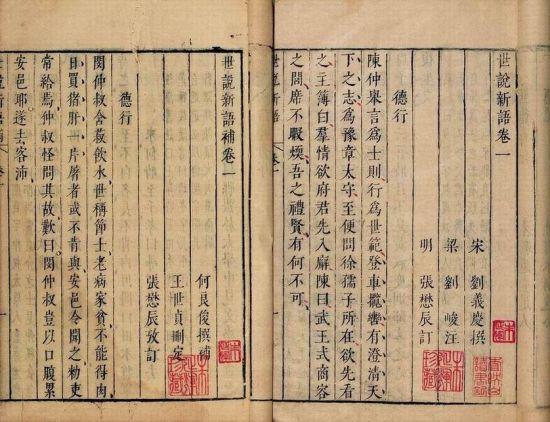 世說新語卷一
宋 劉義慶撰
梁 劉峻注
明 張懋辰訂
德行
陳仲舉言爲士則行爲世範登車攬轡有澄清天
下之志爲豫章太守至便問徐孺子所在欲先看
之主簿白羣情欲府君先入廨陳曰武王式商容
之閭席不暇煗吾之禮賢有何不可
世說新語 卷一
世說新語補卷一
何良俊撰補
王世貞刪定
張懋辰攷訂
德行
閔仲叔含菽飲水世稱節士老病家貧不能得肉
日買猪肝一片屠者或不肯與安邑令聞之勑吏
常給焉仲叔怪問其故歎曰閔仲叔豈以口腹累
安邑耶遂去客沛
世說新語補 卷一